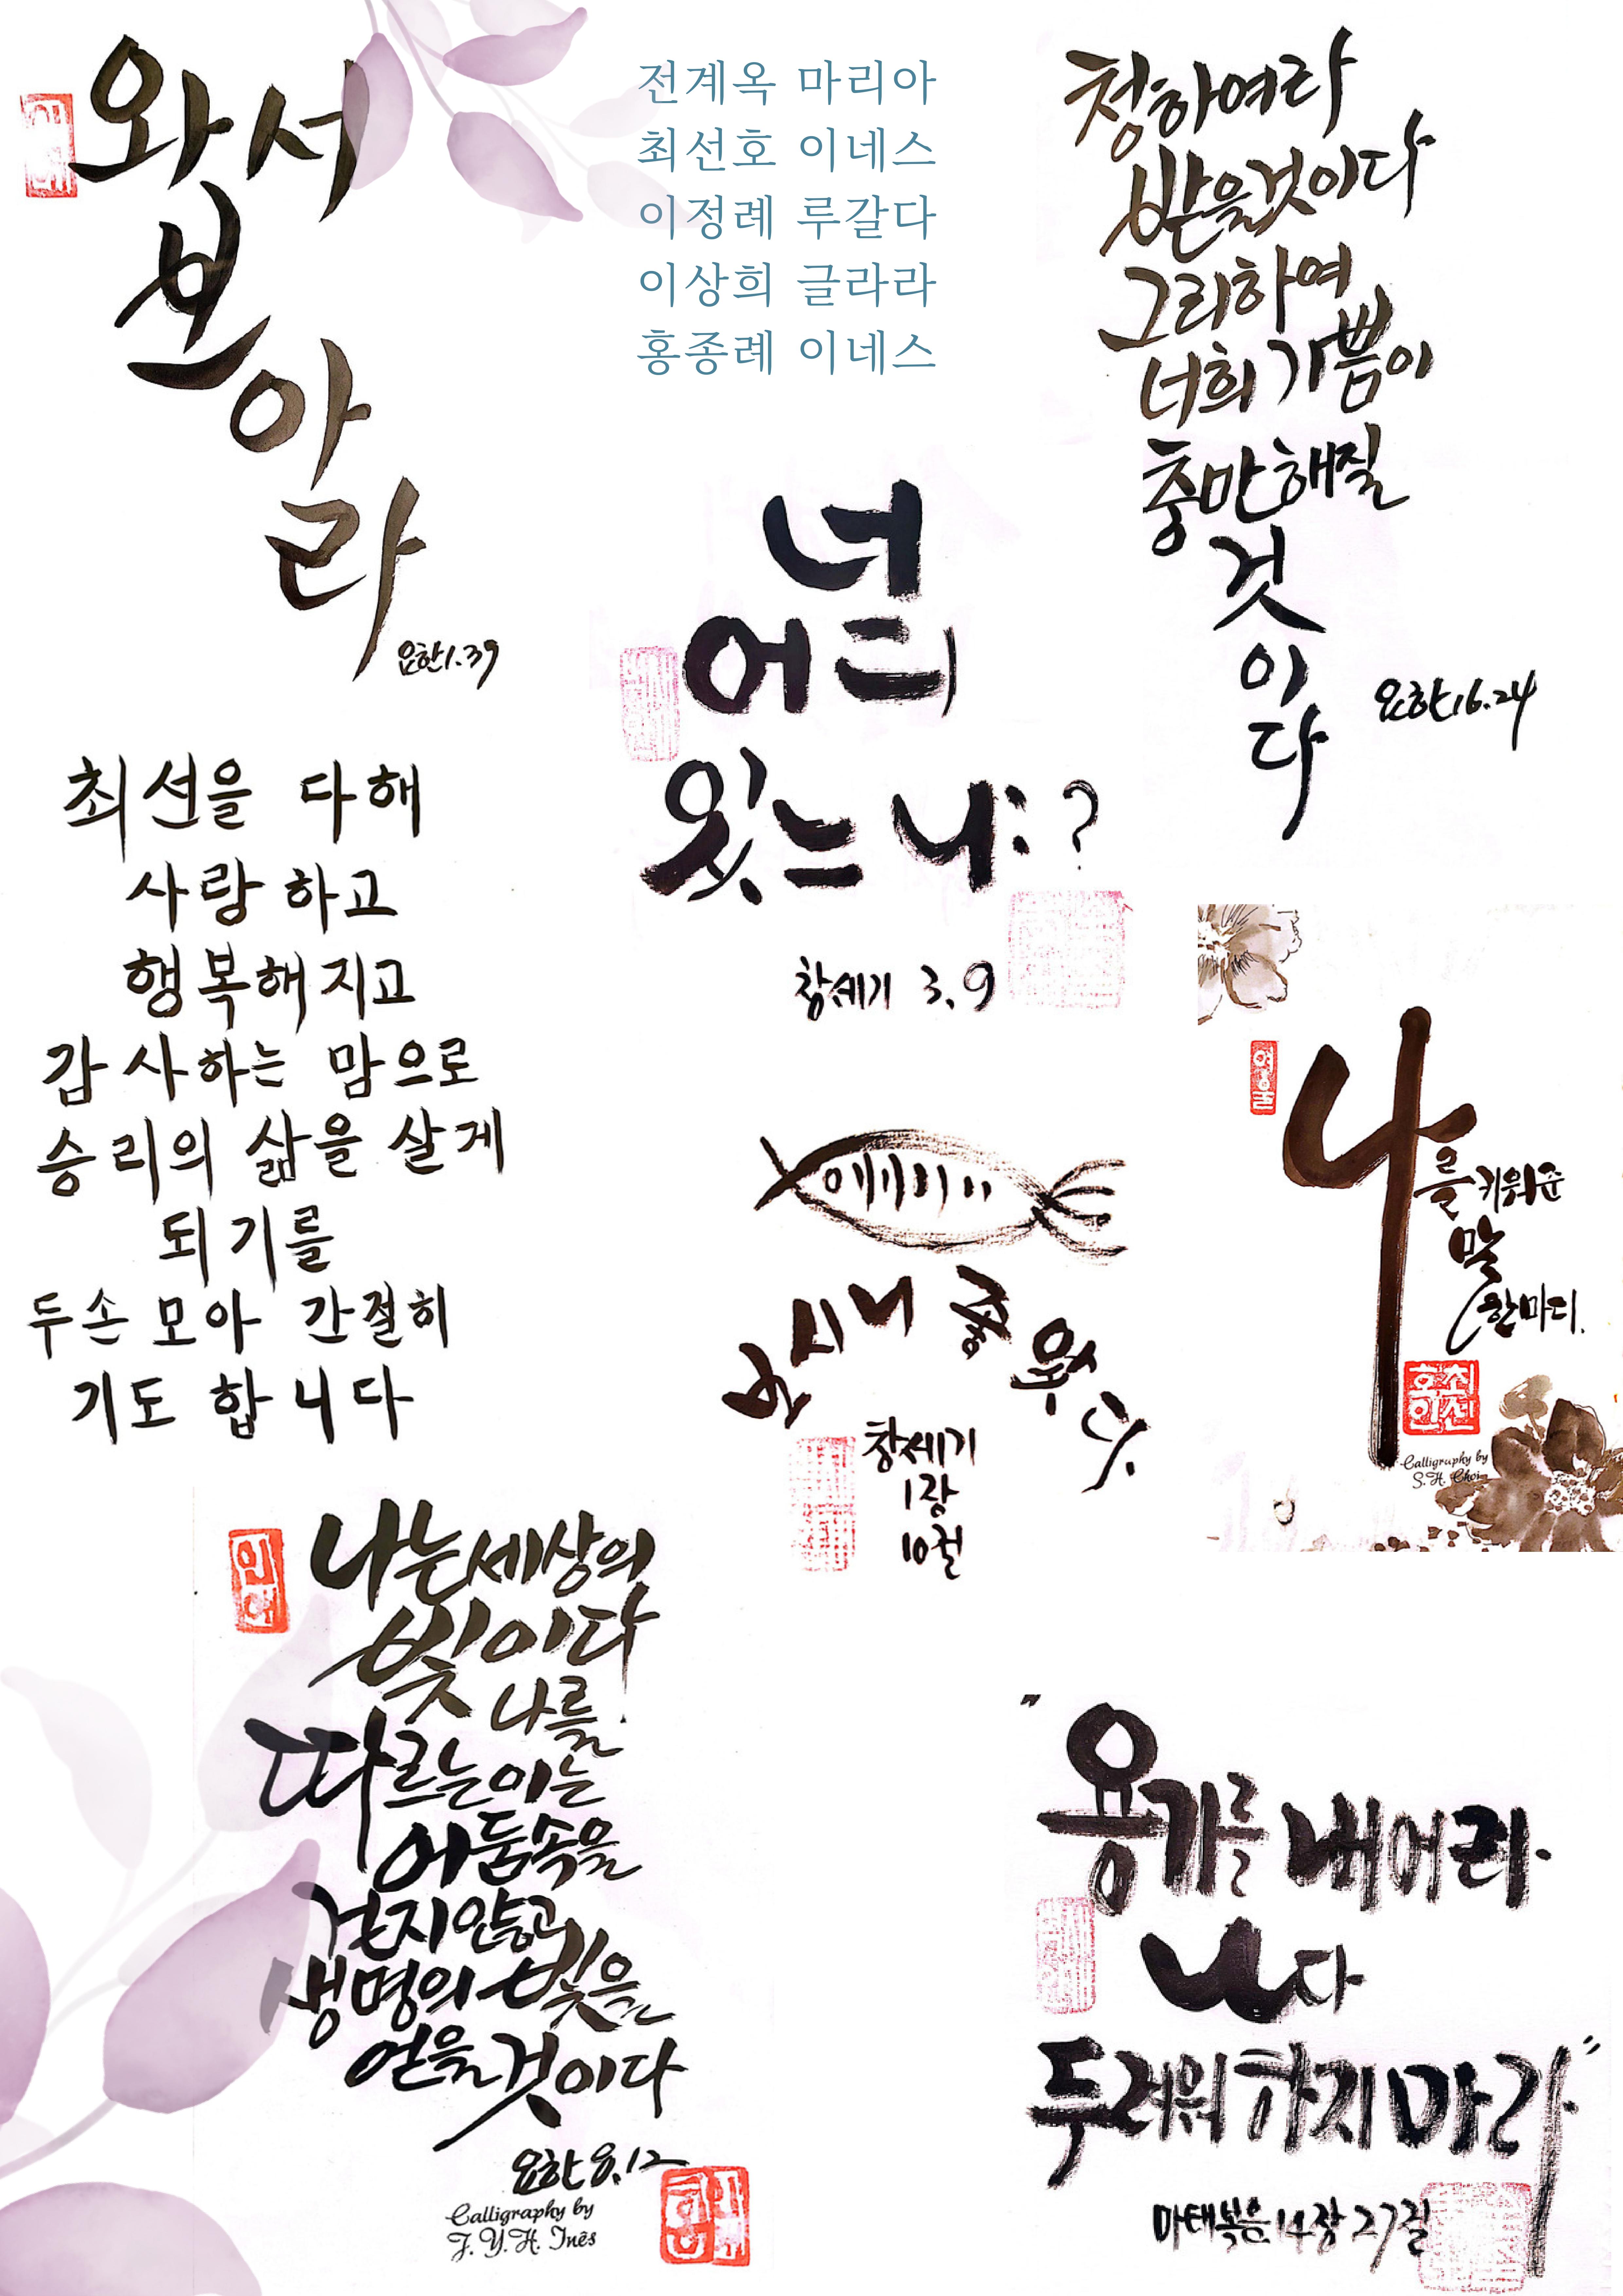 와서
보
아
라
요한1.39
전계옥 마리아
최선호 이네스
이정례 루갈다
이상희 글라라
홍종례 이네스
청하여라
받을것이다
그리하여
너희 기쁨이
충만해질
것
이
다
요한16.24
너
어디
있느냐?
창세기 3.9
최선을 다해
사랑하고
행복해지고
감사하는 맘으로
승리의 삶을 살게
되기를
두손 모아 간절히
기도 합니다
보시니 좋았다.
창세기
1장
10절
여울
나를 키워준
말
한마디.
Calligraphy by
S.H. Choi
나는세상의
빛이다
나를
따르는이는
어둠속을
걷지않고
생명의 빛을
얻을것이다
요한8.12
Calligraphy by
J.Y.H. Inês
"용기를 내어라.
나다
두려워하지마라."
마태복음14장27절